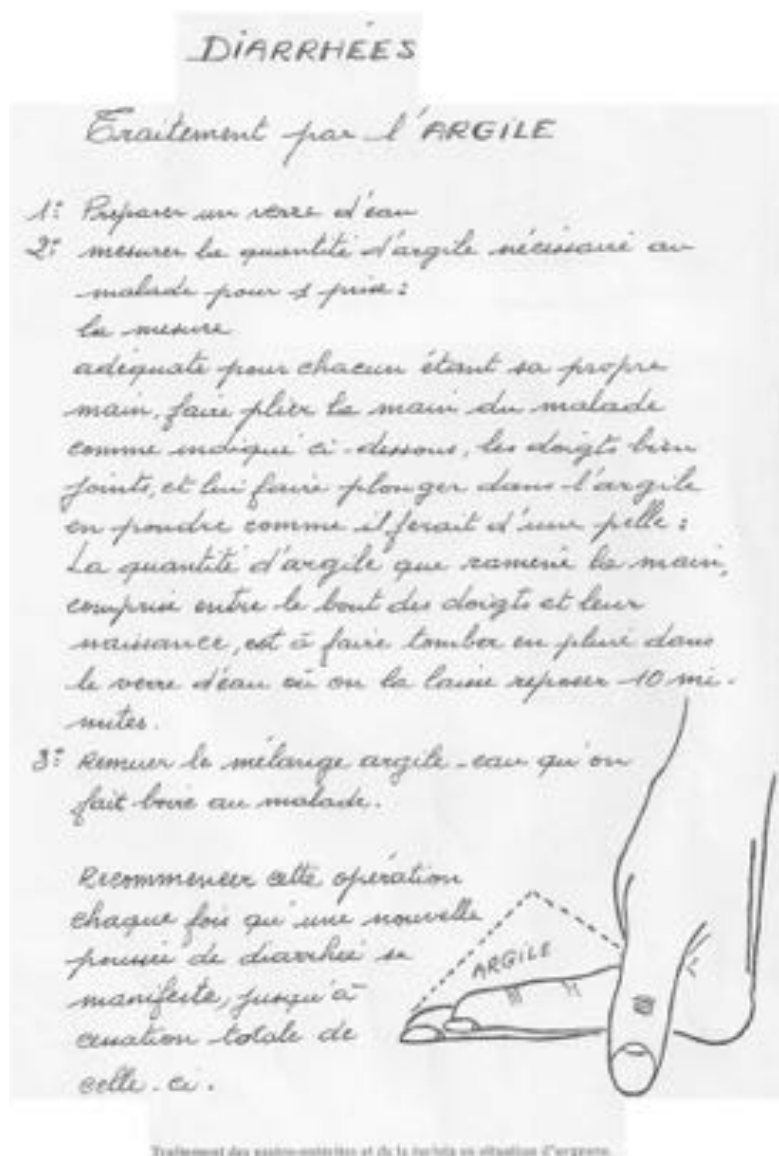 DIARRHÉES
Traitement par l'ARGILE
1: Préparer un verre d'eau
2: mesurer la quantité d'argile nécessaire au
malade pour 1 prise:
la mesure
adéquate pour chacun étant sa propre
main, faire plier la main du malade
comme indiqué ci-dessous, les doigts bien
joints, et lui faire plonger dans l'argile
en poudre comme il ferait d'une pelle:
La quantité d'argile que ramène la main,
comprise entre le bout des doigts et leur
naissance, est à faire tomber en pluie dans
le verre d'eau où on la laisse reposer 10 mi-
nutes.
3: Remuer le mélange argile-eau qu'on
fait boire au malade.
Recommencer cette opération
chaque fois qu'une nouvelle
poussée de diarrhée se
manifeste, jusqu'à
cessation totale de
celle-ci.
ARGILE
Traitement des gastro-entérites et de la en situation d'urgence.